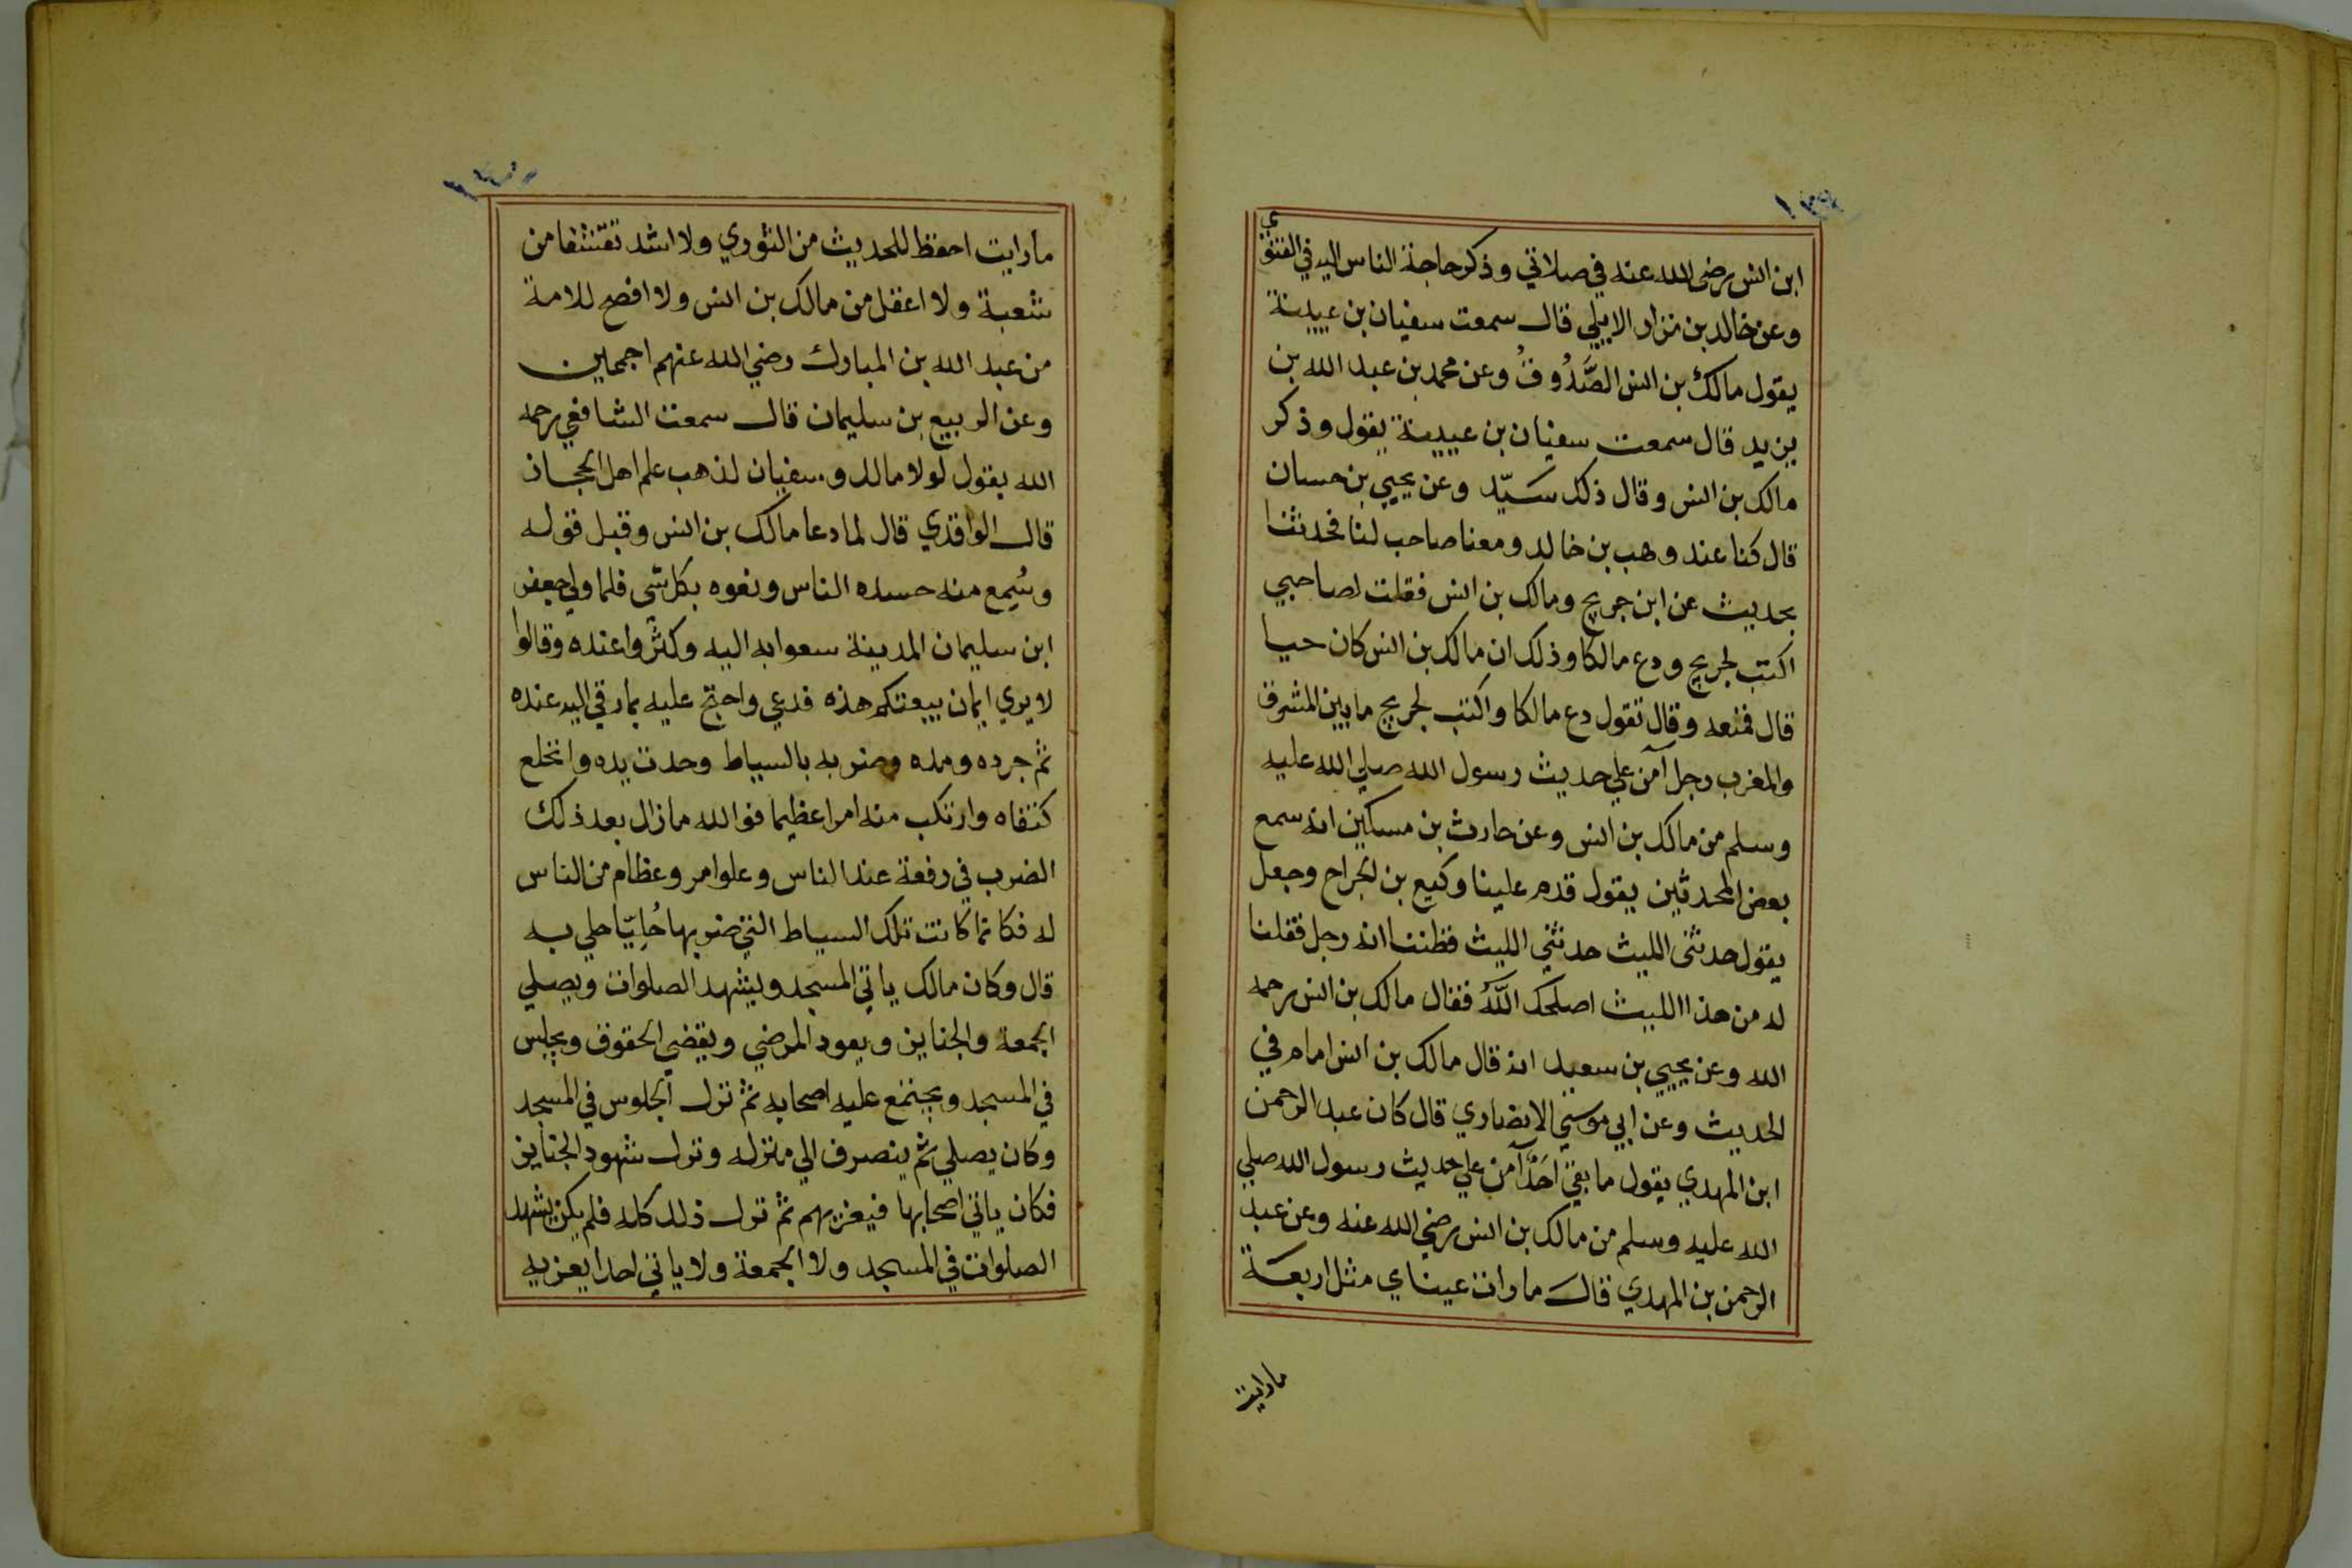 ١٣٩
ابن انس رضى الله عنه في صلاتي وذكر حاجة الناس اليه في الفتوي
وعن خالد بن نزار الابيلي قال سمعت سفيان بن عيينة
يقول مالك بن انس الصَّدُوفُ وعن محمد بن عبد الله بن
يزيد قال سمعت سفيان بن عيينة يقول وذكر
مالك بن انس وقال ذلك سيّد وعن يحيي بن حسان
قال كنا عند وهب بن خالد ومعنا صاحب لنا فحدثنا
بحديث عن ابن جريج ومالك بن انس فقلت لصاحبي
اكتب لجريج ودع مالكا وذلك ان مالك بن انس كان حيا
قال فمنعه وقال تقول دع مالكا واكتب لجريج ما بين المشرق
والمغرب رجل آمن علي حديث رسول الله صلي الله عليه
وسلم من مالك بن انس وعن حارث بن مسكين انه سمع
بعض المحدثين يقول قدم علينا وكيع بن الجراح وجعل
يقول حدثنى الليث حدثني الليث فظننا انه رجل فقلنا
له من هذا الليث اصلحك اللّهُ فقال مالك بن انس رحمه
الله وعن يحيي بن سعيد انه قال مالك بن انس امام في
الحديث وعن ابي موسي الانصاري قال كان عبد الرحمن
ابن المهدي يقول ما بقي احَدٌ آمن علي حديث رسول الله صلي
الله عليه وسلم من مالك بن انس رضي الله عنه وعن عبد
الرحمن بن المهدي قال ما رات عيناي مثل اربعة
مارايت
١٤٠
مارايت احفظ للحديث من الثوري ولا اشد تقشفا من
شعبة ولا اعقل من مالك بن انس ولا افصح للامة
من عبد الله بن المبارك رضي الله عنهم اجمعين
وعن الربيع بن سليمان قال سمعت الشافعي رحمه
الله يقول لولا مالك وسفيان لذهب علم اهل الحجاز
قال الواقدي قال لما دعا مالك بن انس وقبل قوله
وسُمِع منه حسده الناس ونعوه بكل شي فلما ولي جعفر
ابن سليمان المدينة سعوا به اليه وكثَّروا عنده وقالوا
لا يري ايمان بيعتكم هذه فدعي واحتج عليه بما رقي اليه عنده
ثم جرده ومده وضربه بالسياط وحدت يده وانخلع
كتفاه وارتكب منه امرا عظيما فوالله ما زال بعد ذلك
الضرب في رفعة عند الناس وعلو امر وعظام من الناس
له فكانما كانت تلك السياط التي ضرب بها حُلِيّا حلي به
قال وكان مالك ياتي المسجد ويشهد الصلوات ويصلي
الجمعة والجنايز ويعود المرضي ويقضي الحقوق ويجلس
في المسجد ويجتمع عليه اصحابه ثم ترك الجلوس في المسجد
وكان يصلي ثم ينصرف الي منزله وترك شهود الجنايز
فكان ياتي اصحابها فيعزيهم ثم ترك ذلك كله فلم يكن يشهد
الصلوات في المسجد ولا الجمعة ولا ياتي احدا يعزيه